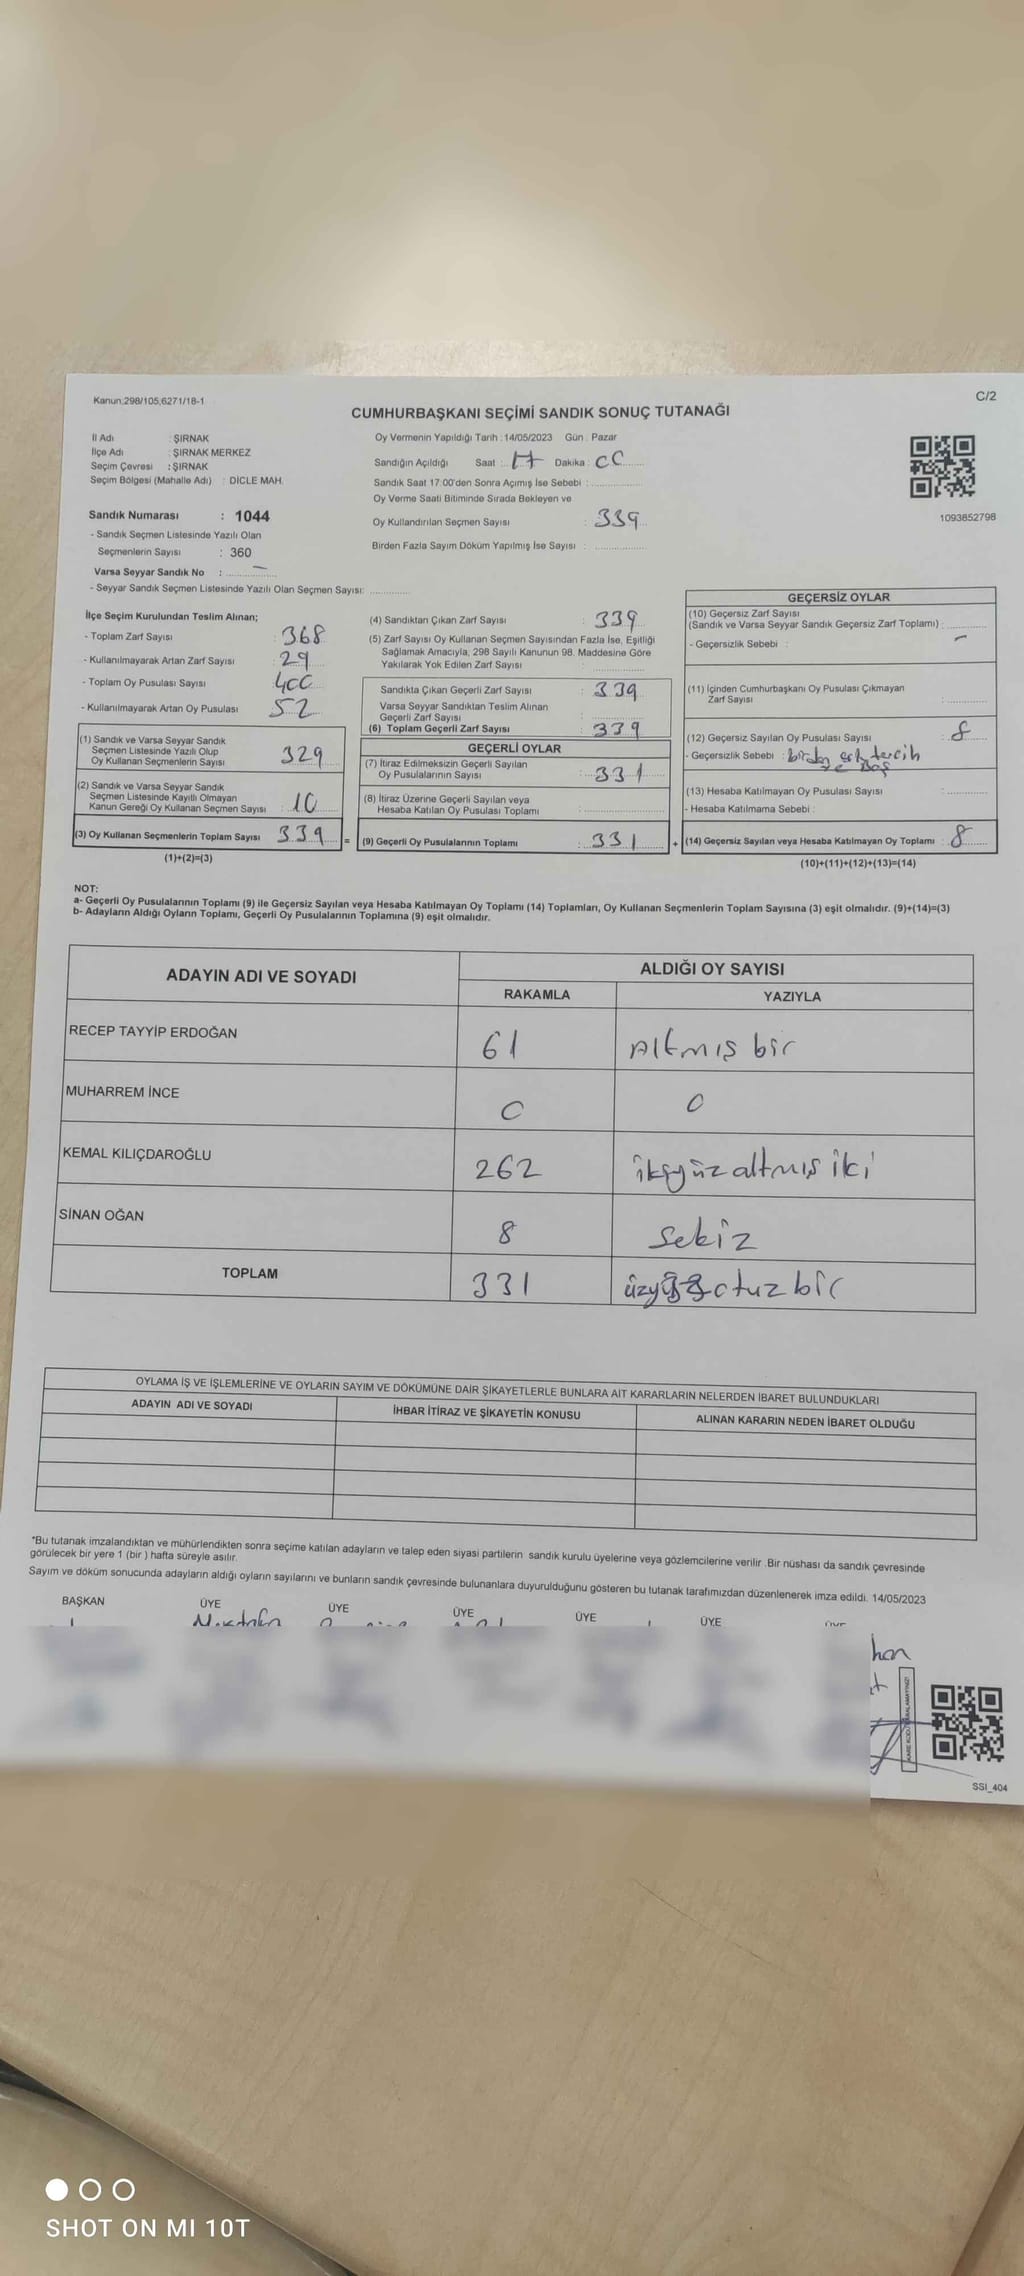 Kanun:298/105;6271/18-1
C/2
CUMHURBAŞKANI SEÇİMİ SANDIK SONUÇ TUTANAĞI
İl Adı : ŞIRNAK
İlçe Adı : ŞIRNAK MERKEZ
Seçim Çevresi : ŞIRNAK
Seçim Bölgesi (Mahalle Adı) : DİCLE MAH.
Sandık Numarası : 1044
- Sandık Seçmen Listesinde Yazılı Olan
Seçmenlerin Sayısı : 360
Varsa Seyyar Sandık No : —
- Seyyar Sandık Seçmen Listesinde Yazılı Olan Seçmen Sayısı:
Oy Vermenin Yapıldığı Tarih : 14/05/2023 Gün : Pazar
Sandığın Açıldığı Saat : 17 Dakika : 00
Sandık Saat 17:00'den Sonra Açımış İse Sebebi :
Oy Verme Saati Bitiminde Sırada Bekleyen ve
Oy Kullandırılan Seçmen Sayısı : 339
Birden Fazla Sayım Döküm Yapılmış İse Sayısı :
1093652798
İlçe Seçim Kurulundan Teslim Alınan;
- Toplam Zarf Sayısı : 368
- Kullanılmayarak Artan Zarf Sayısı : 29
- Toplam Oy Pusulası Sayısı : 400
- Kullanılmayarak Artan Oy Pusulası : 52
(1) Sandık ve Varsa Seyyar Sandık
Seçmen Listesinde Yazılı Olup
Oy Kullanan Seçmenlerin Sayısı : 329
(2) Sandık ve Varsa Seyyar Sandık
Seçmen Listesinde Kayıtlı Olmayan
Kanun Gereği Oy Kullanan Seçmen Sayısı : 10
(3) Oy Kullanan Seçmenlerin Toplam Sayısı : 339 =
(1)+(2)=(3)
(4) Sandıktan Çıkan Zarf Sayısı : 339
(5) Zarf Sayısı Oy Kullanan Seçmen Sayısından Fazla İse, Eşitliği
Sağlamak Amacıyla, 298 Sayılı Kanunun 98. Maddesine Göre
Yakılarak Yok Edilen Zarf Sayısı :
Sandıkta Çıkan Geçerli Zarf Sayısı : 339
Varsa Seyyar Sandıktan Teslim Alınan
Geçerli Zarf Sayısı :
(6) Toplam Geçerli Zarf Sayısı : 339
GEÇERLİ OYLAR
(7) İtiraz Edilmeksizin Geçerli Sayılan
Oy Pusulalarının Sayısı : 331
(8) İtiraz Üzerine Geçerli Sayılan veya
Hesaba Katılan Oy Pusulası Toplamı :
(9) Geçerli Oy Pusulalarının Toplamı : 331 +
GEÇERSİZ OYLAR
(10) Geçersiz Zarf Sayısı
(Sandık ve Varsa Seyyar Sandık Geçersiz Zarf Toplamı) :
- Geçersizlik Sebebi : —
(11) İçinden Cumhurbaşkanı Oy Pusulası Çıkmayan
Zarf Sayısı :
(12) Geçersiz Sayılan Oy Pusulası Sayısı : 8
- Geçersizlik Sebebi : tercih
(13) Hesaba Katılmayan Oy Pusulası Sayısı :
- Hesaba Katılmama Sebebi :
(14) Geçersiz Sayılan veya Hesaba Katılmayan Oy Toplamı : 8
(10)+(11)+(12)+(13)=(14)
NOT:
a- Geçerli Oy Pusulalarının Toplamı (9) ile Geçersiz Sayılan veya Hesaba Katılmayan Oy Toplamı (14) Toplamları, Oy Kullanan Seçmenlerin Toplam Sayısına (3) eşit olmalıdır. (9)+(14)=(3)
b- Adayların Aldığı Oyların Toplamı, Geçerli Oy Pusulalarının Toplamına (9) eşit olmalıdır.
ADAYIN ADI VE SOYADI ALDIĞI OY SAYISI
RAKAMLA YAZIYLA
RECEP TAYYİP ERDOĞAN 61 Altmış bir
MUHARREM İNCE 0 0
KEMAL KILIÇDAROĞLU 262 ikiyüz altmış iki
SİNAN OĞAN 8 Sekiz
TOPLAM 331 üzyüz otuz bir
OYLAMA İŞ VE İŞLEMLERİNE VE OYLARIN SAYIM VE DÖKÜMÜNE DAİR ŞİKAYETLERLE BUNLARA AİT KARARLARIN NELERDEN İBARET BULUNDUKLARI
ADAYIN ADI VE SOYADI İHBAR İTİRAZ VE ŞİKAYETİN KONUSU ALINAN KARARIN NEDEN İBARET OLDUĞU
*Bu tutanak imzalandıktan ve mühürlendikten sonra seçime katılan adayların ve talep eden siyasi partilerin sandık kurulu üyelerine veya gözlemcilerine verilir. Bir nüshası da sandık çevresinde
görülecek bir yere 1 (bir ) hafta süreyle asılır.
Sayım ve döküm sonucunda adayların aldığı oyların sayılarını ve bunların sandık çevresinde bulunanlara duyurulduğunu gösteren bu tutanak tarafımızdan düzenlenerek imza edildi. 14/05/2023
BAŞKAN ÜYE ÜYE ÜYE ÜYE ÜYE ÜYE
SSI_404
SHOT ON MI 10T